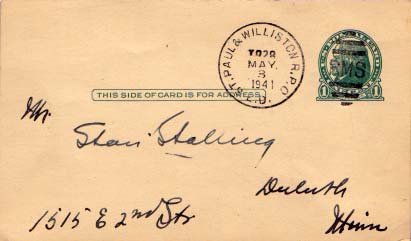 ST. PAUL & WILLISTON R.P.O.
TR28
MAY
3
1941
E.D.
RMS
1 1
THIS SIDE OF CARD IS FOR ADDRESS
Mr.
Stan Stalling
Duluth
1515 E 2nd Str
Minn